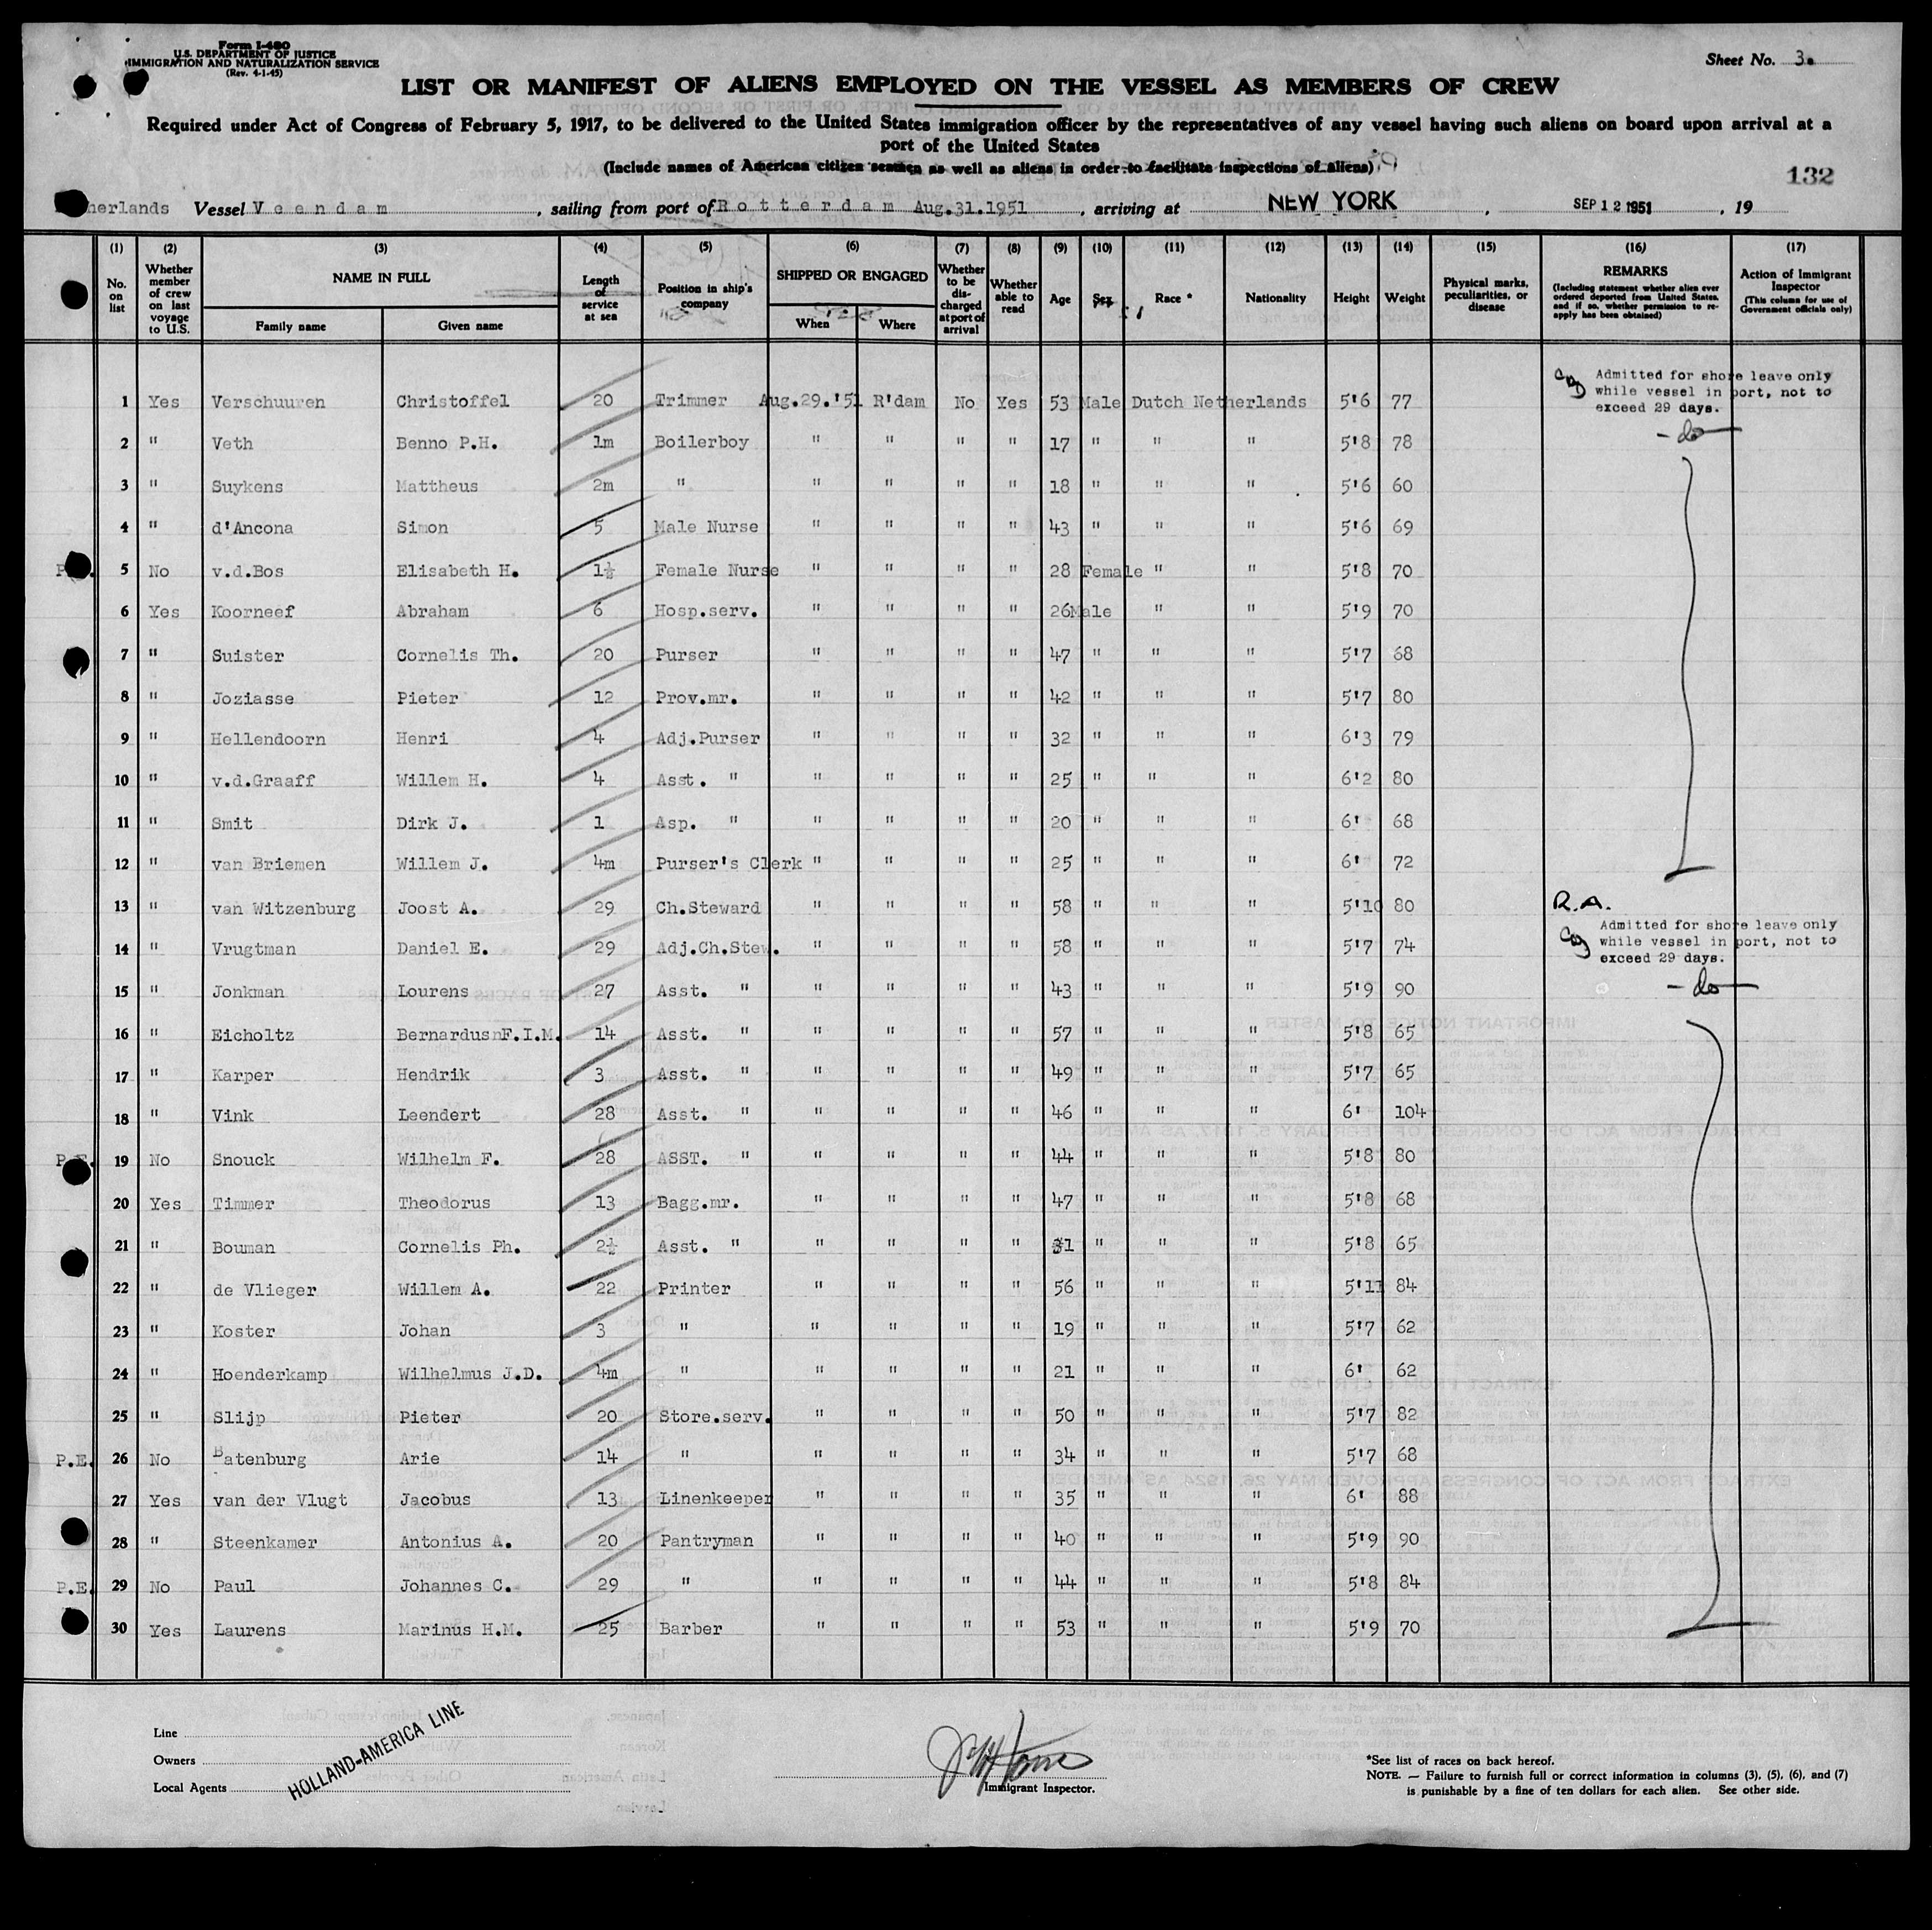 Form I-480
U.S. DEPARTMENT OF JUSTICE
IMMIGRATION AND NATURALIZATION SERVICE
(Rev. 4-1-45)
Sheet No. 3.
LIST OR MANIFEST OF ALIENS EMPLOYED ON THE VESSEL AS MEMBERS OF CREW
Required under Act of Congress of February 5, 1917, to be delivered to the United States immigration officer by the representatives of any vessel having such aliens on board upon arrival at a
port of the United States
(Include names of American citizen seamen as well as aliens in order to facilitate inspections of aliens)
132
herlands Vessel Veendam, sailing from port of Rotterdam Aug.31.1951, arriving at NEW YORK, SEP 12 1951, 19
(1) (2) (3) (4) (5) (6) (7) (8) (9) (10) (11) (12) (13) (14) (15) (16) (17)
No. on list | Whether member of crew on last voyage to U.S. | NAME IN FULL | Family name | Given name | Length of service at sea | Position in ship's company | SHIPPED OR ENGAGED | When | Where | Whether to be discharged at port of arrival | Whether able to read | Age | Sex | Race * | Nationality | Height | Weight | Physical marks, peculiarities, or disease | REMARKS (Including statement whether alien ever ordered deported from United States, and if so, whether permission to re-apply has been obtained) | Action of Immigrant Inspector (This column for use of Government officials only)
Admitted for shore leave only
while vessel in port, not to
exceed 29 days.
1 Yes Verschuuren Christoffel 20 Trimmer Aug.29.'51 R'dam No Yes 53 Male Dutch Netherlands 5'6 77
2 " Veth Benno P.H. 1m Boilerboy " " " " 17 " " " 5'8 78 - do -
3 " Suykens Mattheus 2m " " " " " 18 " " " 5'6 60
4 " d'Ancona Simon 5 Male Nurse " " " " 43 " " " 5'6 69
5 No v.d.Bos Elisabeth H. 1½ Female Nurse " " " " 28 Female " " 5'8 70
6 Yes Koorneef Abraham 6 Hosp.serv. " " " " 26 Male " " 5'9 70
7 " Suister Cornelis Th. 20 Purser " " " " 47 " " " 5'7 68
8 " Joziasse Pieter 12 Prov.mr. " " " " 42 " " " 5'7 80
9 " Hellendoorn Henri 4 Adj.Purser " " " " 32 " " " 6'3 79
10 " v.d.Graaff Willem H. 4 Asst. " " " " " 25 " " " 6'2 80
11 " Smit Dirk J. 1 Asp. " " " " " 20 " " " 6' 68
12 " van Briemen Willem J. 4m Purser's Clerk " " " " 25 " " " 6' 72
13 " van Witzenburg Joost A. 29 Ch.Steward " " " " 58 " " " 5'10 80 R.A.
Admitted for shore leave only
while vessel in port, not to
exceed 29 days.
14 " Vrugtman Daniel E. 29 Adj.Ch.Stew. " " " " 58 " " " 5'7 74
15 " Jonkman Lourens 27 Asst. " " " " " 43 " " " 5'9 90 - do -
16 " Eicholtz BernardusnF.I.M. 14 Asst. " " " " " 57 " " " 5'8 65
17 " Karper Hendrik 3 Asst. " " " " " 49 " " " 5'7 65
18 " Vink Leendert 28 Asst. " " " " " 46 " " " 6' 104
P.E. 19 No Snouck Wilhelm F. 28 ASST. " " " " " 44 " " " 5'8 80
20 Yes Timmer Theodorus 13 Bagg.mr. " " " " 47 " " " 5'8 68
21 " Bouman Cornelis Ph. 2½ Asst. " " " " " 31 " " " 5'8 65
22 " de Vlieger Willem A. 22 Printer " " " " 56 " " " 5'11 84
23 " Koster Johan 3 " " " " " 19 " " " 5'7 62
24 " Hoenderkamp Wilhelmus J.D. 4m " " " " " 21 " " " 6' 62
25 " Slijp Pieter 20 Store.serv. " " " " 50 " " " 5'7 82
P.E. 26 No Batenburg Arie 14 " " " " " 34 " " " 5'7 68
27 Yes van der Vlugt Jacobus 13 Linenkeeper " " " " 35 " " " 6' 88
28 " Steenkamer Antonius A. 20 Pantryman " " " " 40 " " " 5'9 90
P.E. 29 No Paul Johannes C. 29 " " " " " 44 " " " 5'8 84
30 Yes Laurens Marinus H.M. 25 Barber " " " " 53 " " " 5'9 70
Line
Owners
Local Agents
HOLLAND-AMERICA LINE
Immigrant Inspector.
*See list of races on back hereof.
NOTE. — Failure to furnish full or correct information in columns (3), (5), (6), and (7)
is punishable by a fine of ten dollars for each alien. See other side.